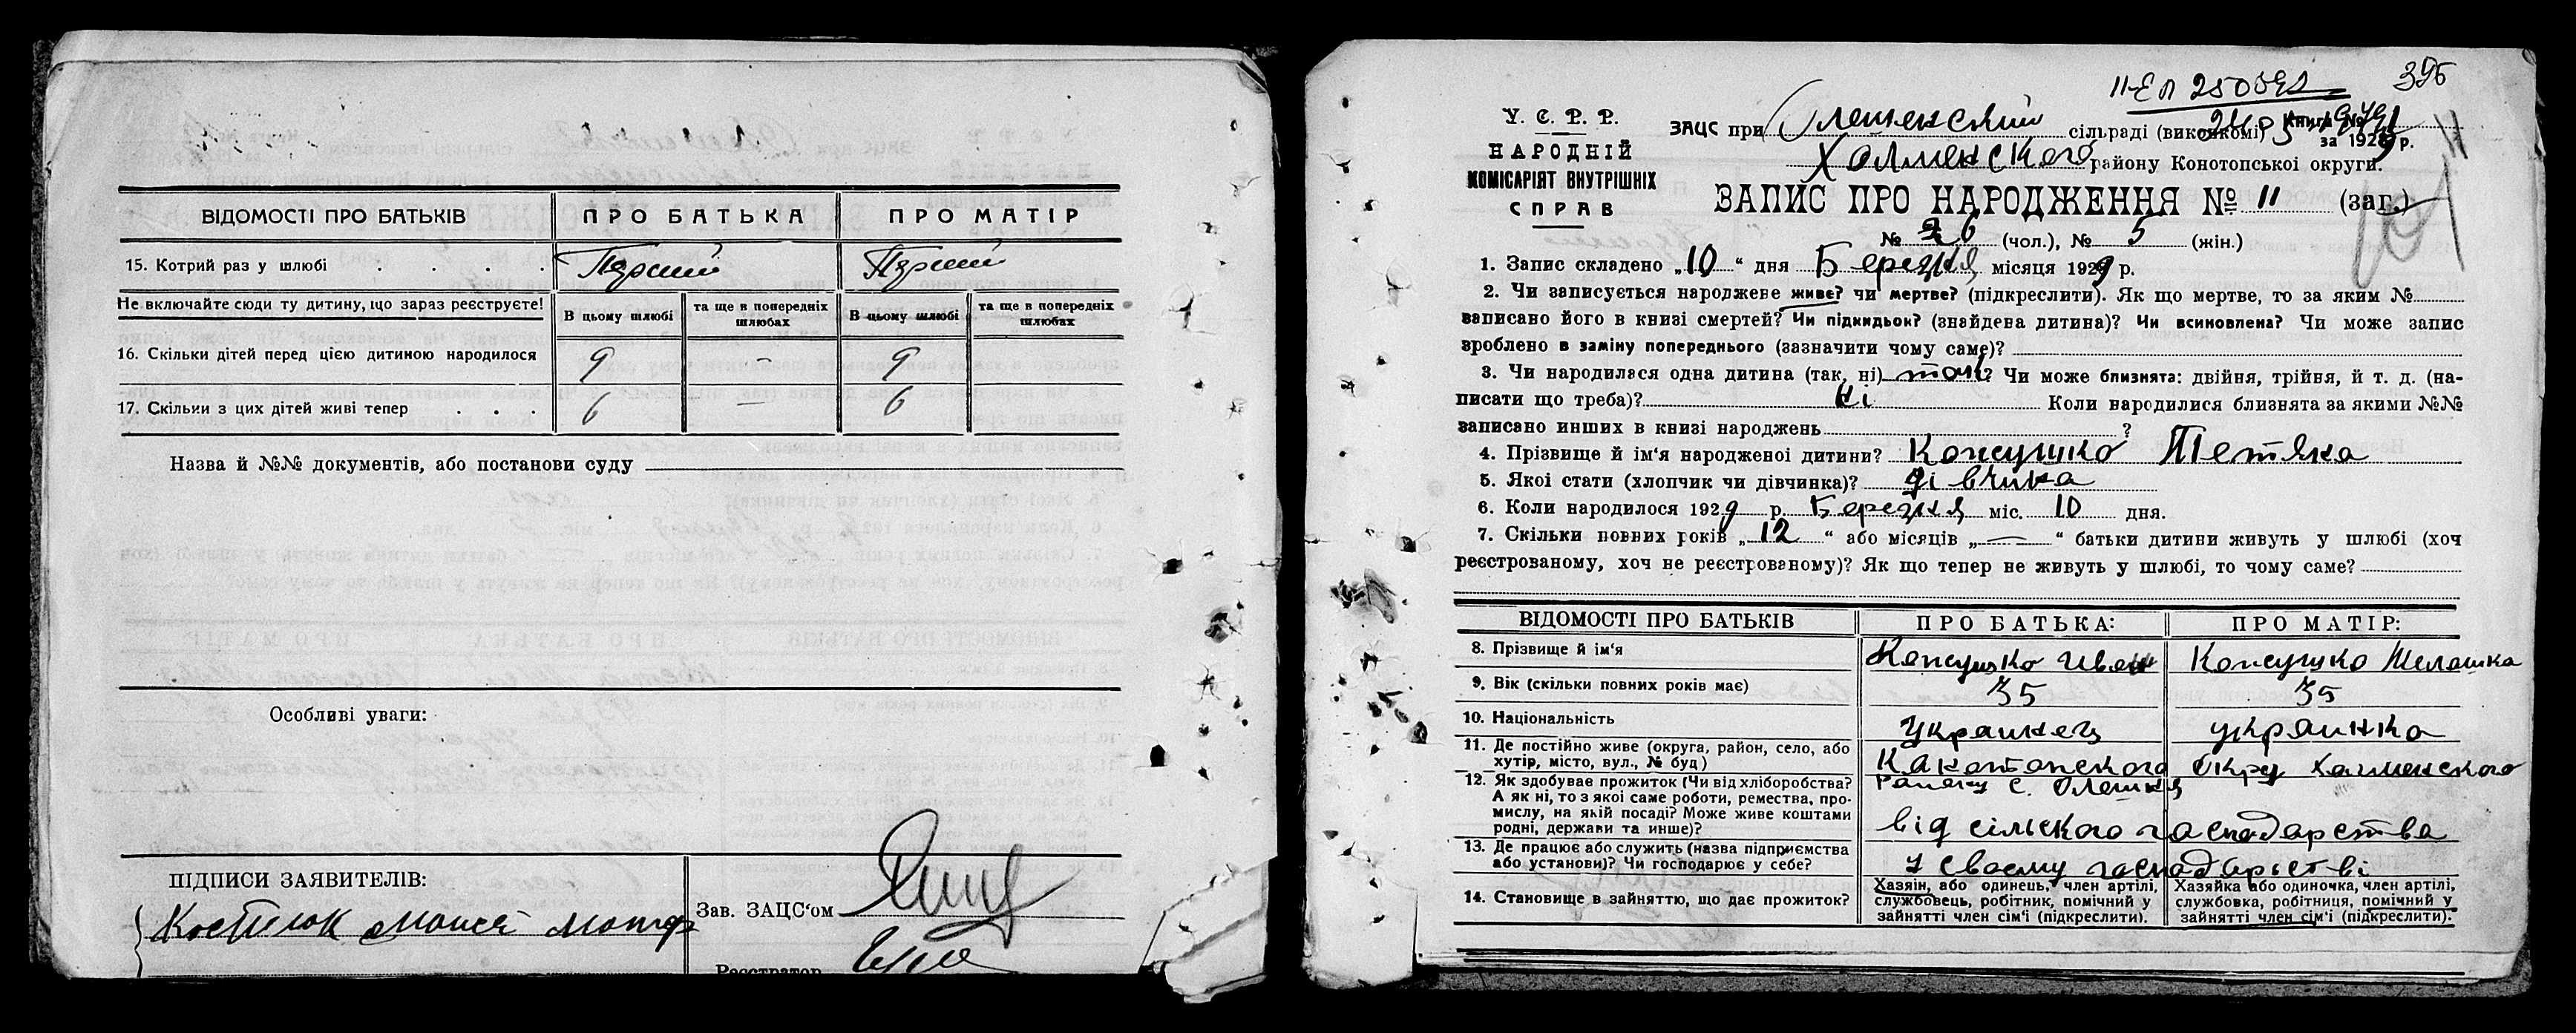 ВІДОМОСТІ ПРО БАТЬКІВ ПРО БАТЬКА ПРО МАТІР
15. Котрий раз у шлюбі . . . . Перший Перший
Не включайте сюди ту дитину, що зараз реєструєте! В цьому шлюбі та ще в попередніх шлюбах В цьому шлюбі та ще в попередніх шлюбах
16. Скільки дітей перед цією дитиною народилося 9 - 9
17. Скільки з цих дітей живі тепер . . . 6 — 6
Назва й №№ документів, або постанови суду
Особливі уваги:
ПІДПИСИ ЗАЯВИТЕЛІВ:
Зав. ЗАЦС'ом
Реєстратор
396
У. С. Р. Р.
НАРОДНІЙ
КОМІСАРІЯТ ВНУТРІШНІХ
СПРАВ
ЗАЦС при Олешенский сільраді (виконкомі) Книга №
за 1929 р.
Холменского району Конотопської округи.
ЗАПИС ПРО НАРОДЖЕННЯ № 11 (заг.)
№ 6 (чол.), № 5 (жін.)
1. Запис складено „10“ дня Березня місяця 1929 р.
2. Чи записується народжене живе? чи мертве? (підкреслити). Як що мертве, то за яким №
записано його в книзі смертей? Чи підкидьок? (знайдена дитина)? Чи всиновлена? Чи може запис
зроблено в заміну попереднього (зазначити чому саме)?
3. Чи народилася одна дитина (так, ні) так? Чи може близнята: двійня, трійня, й т. д. (на-
писати що треба)? Ні Коли народилися близнята за якими №№
записано инших в книзі народжень ?
4. Прізвище й ім'я народженої дитини? Кожушко Тетяна
5. Якої стати (хлопчик чи дівчинка)? дівчина
6. Коли народилося 1929 р. Березня міс. 10 дня.
7. Скільки повних років „12“ або місяців „—“ батьки дитини живуть у шлюбі (хоч
реєстрованому, хоч не реєстрованому)? Як що тепер не живуть у шлюбі, то чому саме?
ВІДОМОСТІ ПРО БАТЬКІВ ПРО БАТЬКА: ПРО МАТІР:
8. Прізвище й ім'я Кожушко Иван Кожушко Мелашка
9. Вік (скільки повних років має) 35 35
10. Національність Украинец украинка
11. Де постійно живе (округа, район, село, або
хутір, місто, вул., № буд) Канотопского Окру Холменского
Району С. Олешня
12. Як здобуває прожиток (Чи від хліборобства?
А як ні, то з якої саме роботи, ремества, про-
мислу, на якій посаді? Може живе коштами
родні, держави та инше)? від сільского господарства
13. Де працює або служить (назва підприємства
або установи)? Чи господарює у себе? у своему господарстві
14. Становище в зайняттю, що дає прожиток?
Хазяін, або одинець, член артілі,
службовець, робітник, помічний у
зайнятті член сім'ї (підкреслити).
Хазяйка або одиночка, член артілі,
службовка, робітниця, помічний у
зайнятті член сім'ї (підкреслити).